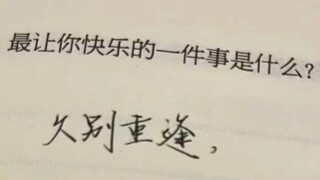 最让你快乐的一件事是什么?
久别重逢,